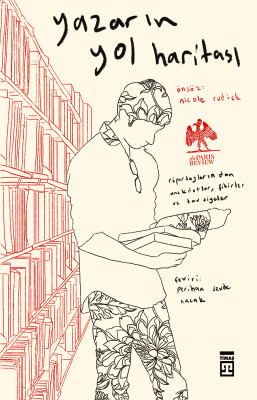 yazarın
yol haritası
önsöz:
nicole rudick
the PARIS
REVIEW
röportajlarından
anekdotlar, fikirler
ve tavsiyeler
çeviri:
perihan sevde
nacak
TİMAŞ